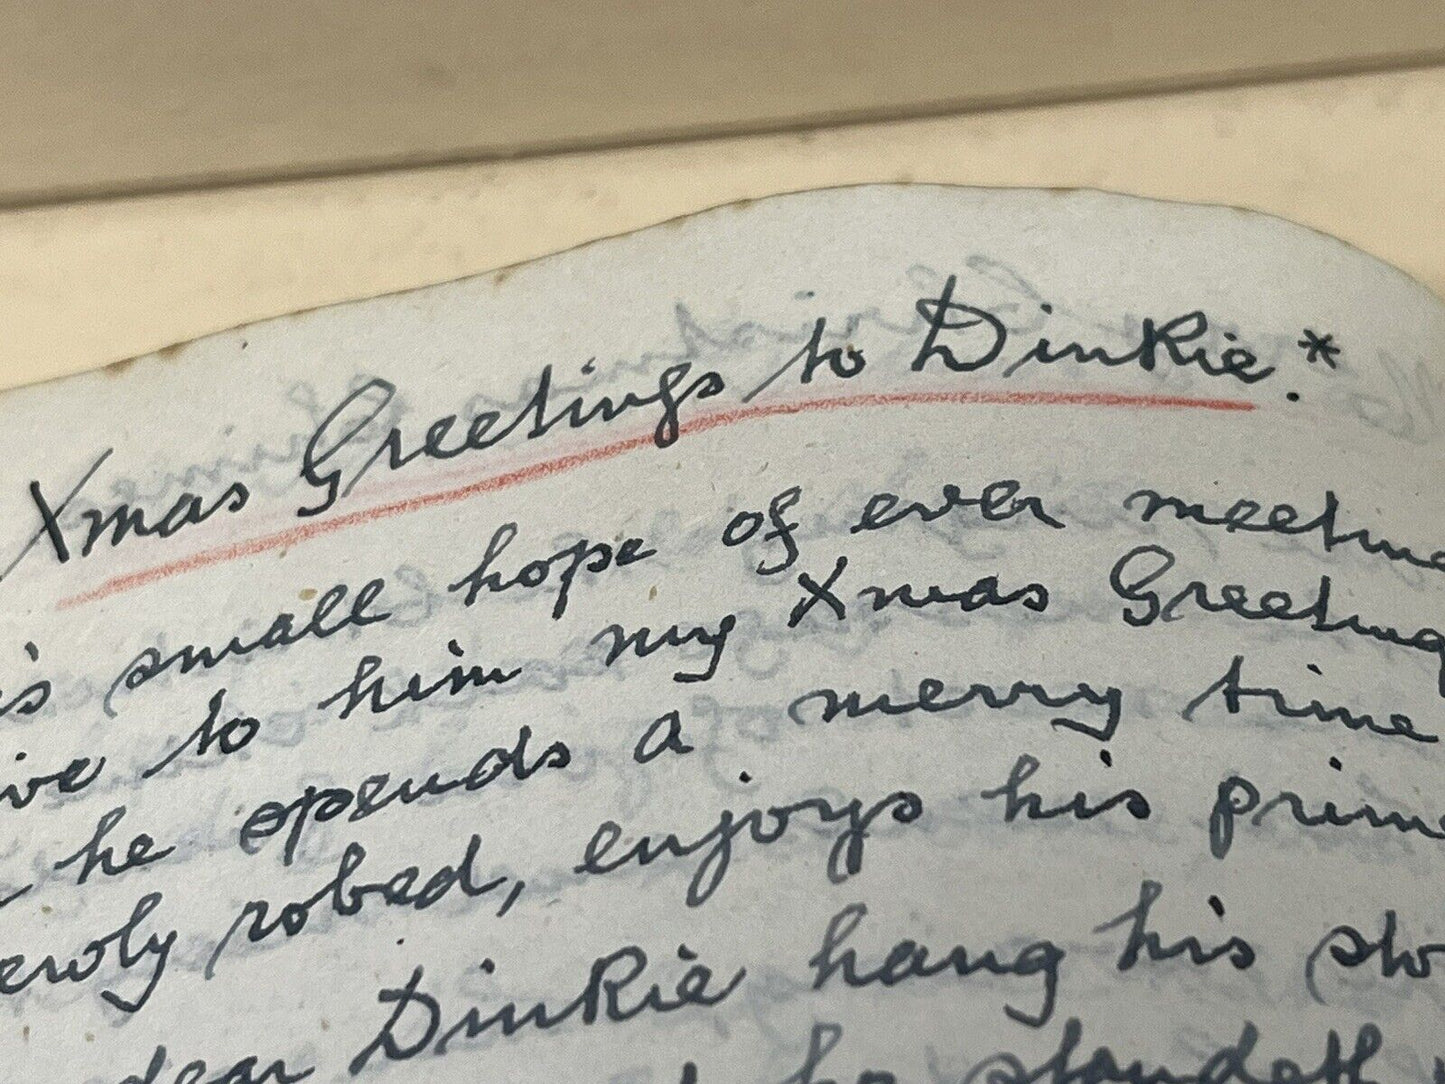 Xmas Greetings to Dinkie.*
is small hope of ever meeting
to him my Xmas Greeting
he spends a merry time
robed, enjoys his
dear Dinkie hang his
he standeth